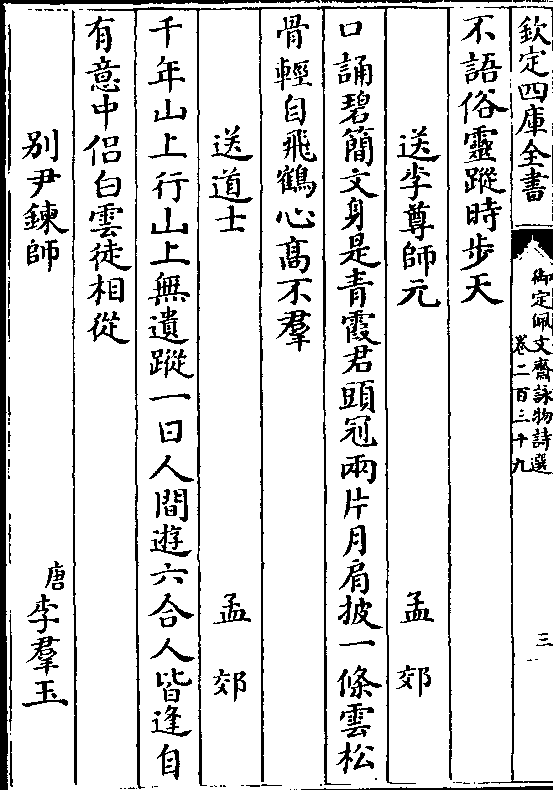 欽定四庫全書
御定佩文齋詠物詩選
卷二百三十九
三
不語俗靈蹤時步天
送李尊師元
孟郊
口誦碧簡文身是青霞君頭冠兩片月肩披一條雲松
骨輕自飛鶴心高不羣
送道士
孟郊
千年山上行山上無遺蹤一日人間遊六合人皆逢自
有意中侣白雲徒相從
别尹鍊師
唐
李羣玉